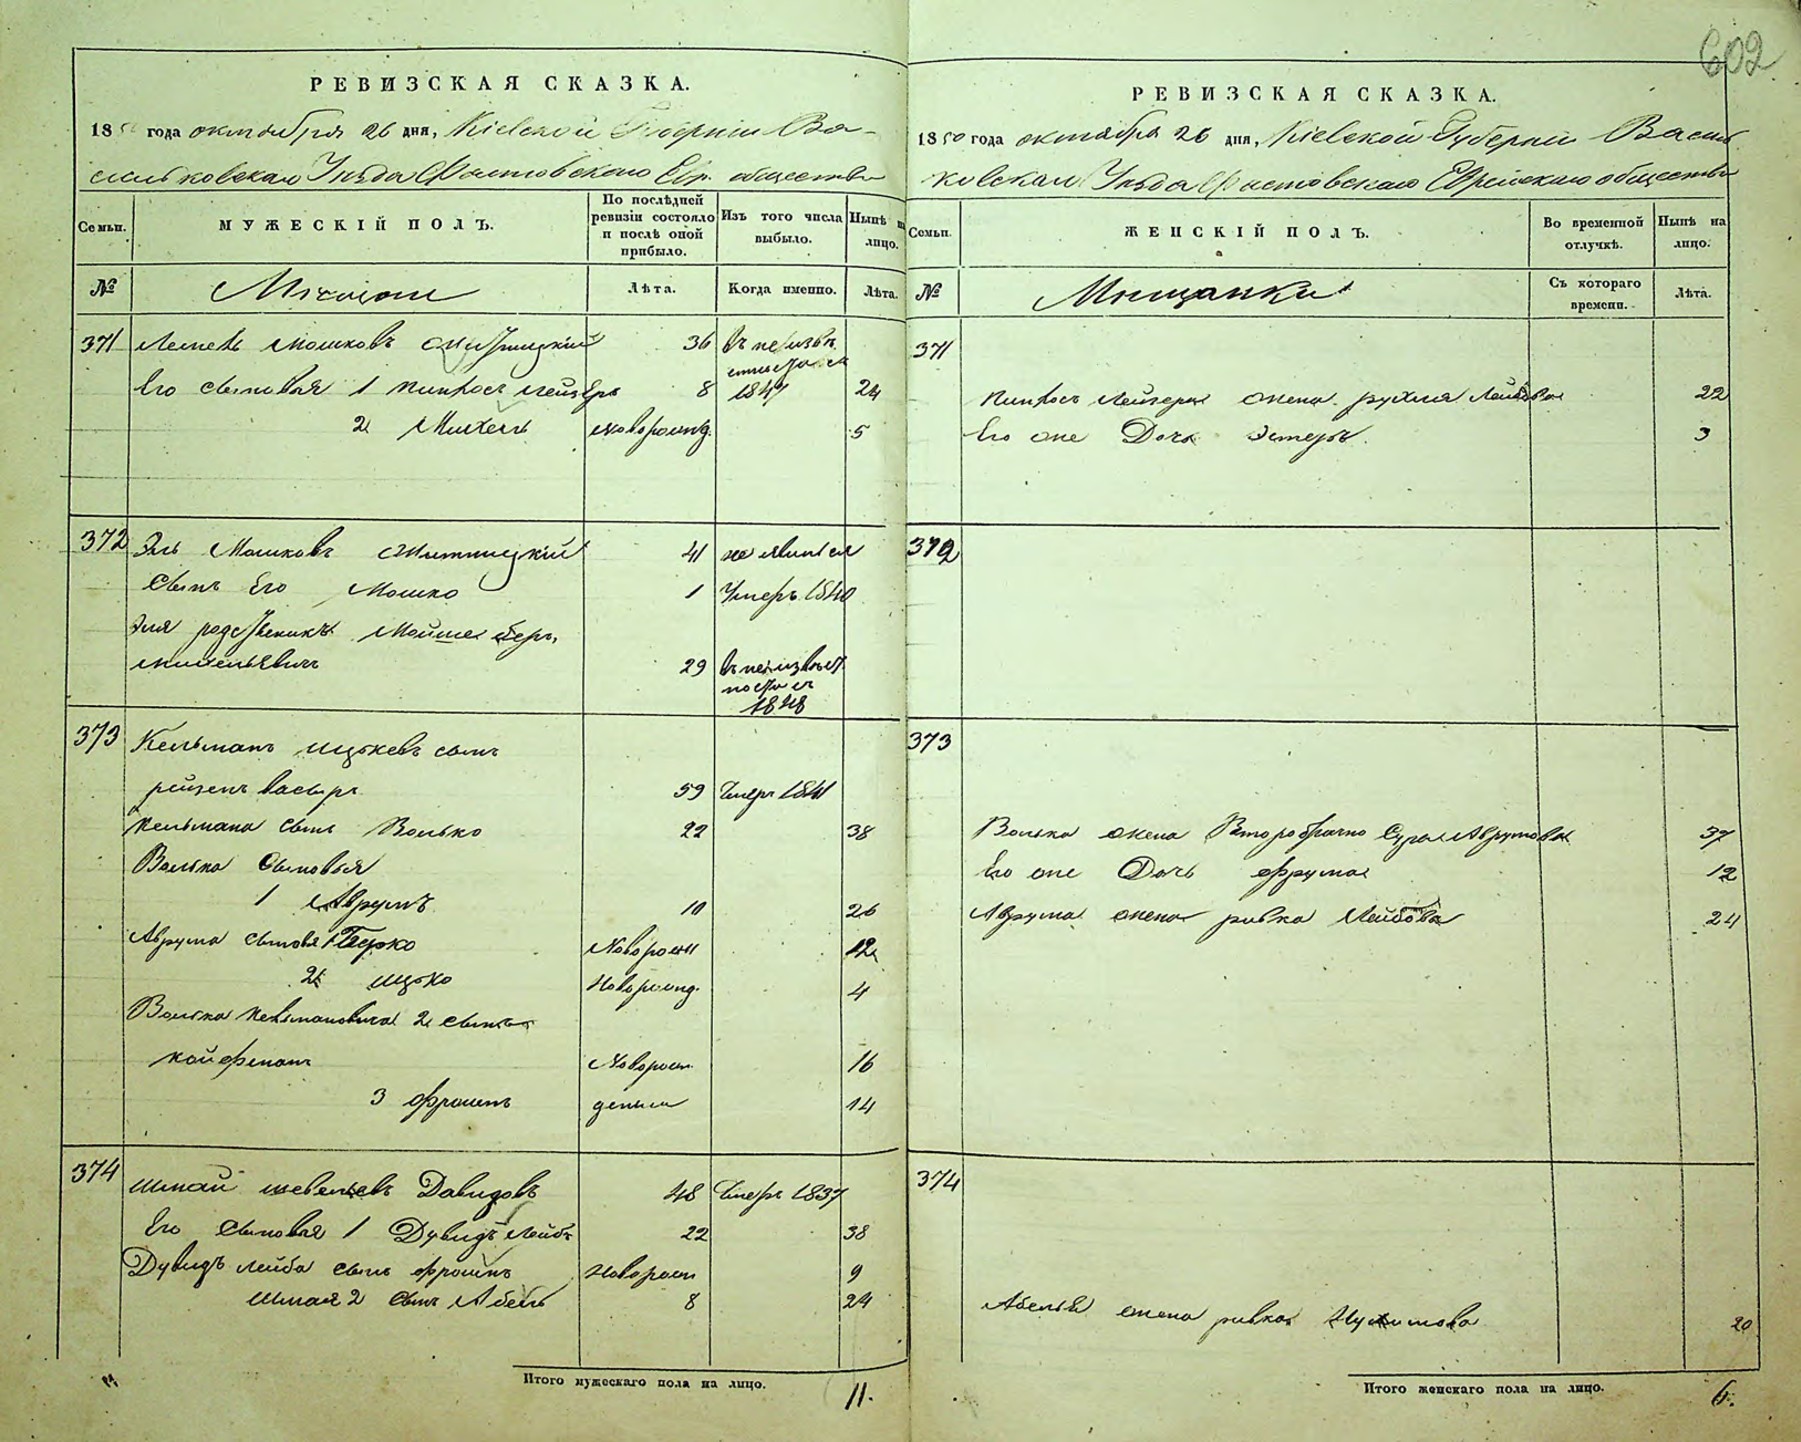 602
РЕВИЗСКАЯ СКАЗКА.
18 года октября 26 дня, Кіевской Губерніи Ва-
сильковскаго Уѣзда Фастовскаго Евр. общества
Семьи. МУЖЕСКІЙ ПОЛЪ. По послѣдней ревизіи состояло и послѣ оной прибыло. Изъ того числа выбыло. Нынѣ на лицо.
№ Мѣщане Лѣта. Когда именно. Лѣта.
371 Мошковъ 36 въ неизвѣ
Его сыновья 1 Пинхосъ Лейзеръ 8 1847 24
2 Михель новорожд. 5
372 Эль Мошковъ Житницкій 41 не явился
Сынъ Его Мошко 1 Умеръ 1840
Эля родственникъ Мойше Беръ
29 въ неизвѣст
1848
373 Кельманъ Ицковъ сынъ
59 Умеръ 1841
Кельмана сынъ Волько 22 38
Волька Сыновья
1 Аврумъ 10 26
Аврума сыновья 1 Берко Новорож 12
2 Ицко Новорожд. 4
Волька Кельмановича 2 сынъ
Койфманъ Новорож 16
3 Фроимъ денные 14
374 Шмай Давидовъ 48 Умеръ 1837
Его Сыновья 1 Дувидъ Лейбъ 22 38
Дувидъ Лейба сынъ Фроимъ Новорож 9
Шмая 2 сынъ Абель 8 24
Итого мужескаго пола на лицо. 11.
РЕВИЗСКАЯ СКАЗКА.
1850 года октября 26 дня, Кіевской Губерніи Василь
ковскаго Уѣзда Фастовскаго Еврейскаго общества
Семьи. ЖЕНСКІЙ ПОЛЪ. Во временной отлучкѣ. Нынѣ на лицо.
№ Мѣщанки Съ котораго времени. Лѣта.
371
Пинхосъ Лейзера жена Рухля Лейбова 22
Его же Дочь Эстеръ. 3
372
373
Волька жена Второбрачно Сура Аврумова 37
Его же Дочь Фрума 12
Аврума жена Ривка Лейбова 24
374
Абеля жена Ривка 20
Итого женскаго пола на лицо. 6.